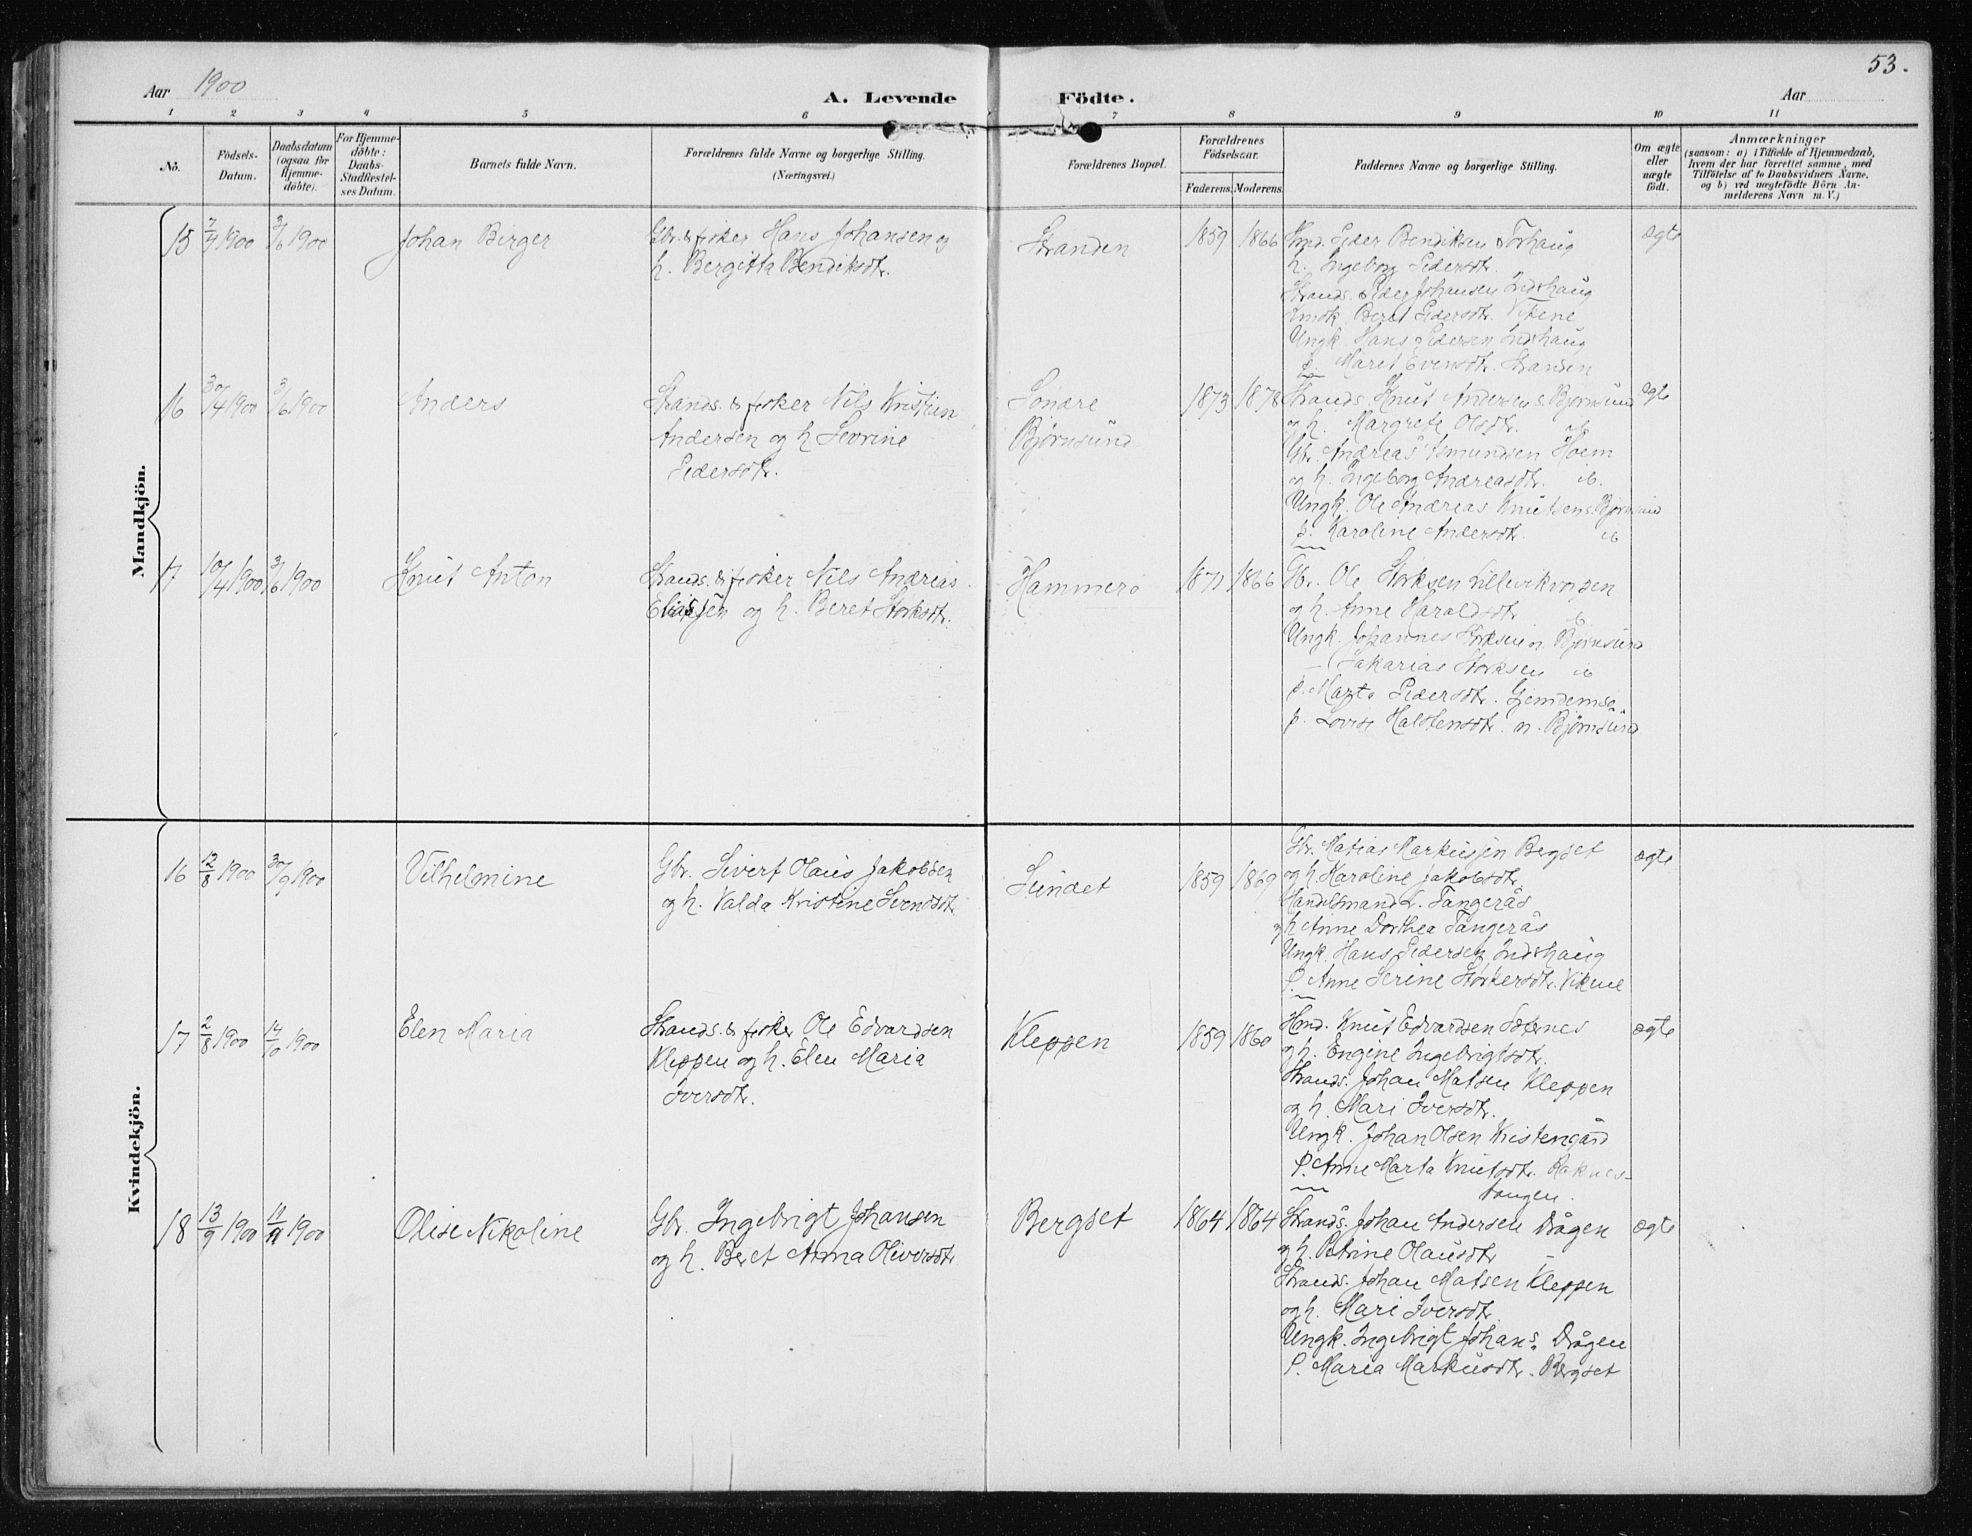 53.
Aar 1900
A. Levende Födte.
Aar
1 2 3 4 5 6 7 8 9 10 11
No.
Födsels-Datum.
Daabsdatum (ogsaa for Hjemmedøbte).
For Hjemmedøbte: Daabs-Stadfestelses Datum.
Barnets fulde Navn.
Forældrenes fulde Navne og borgerlige Stilling.
(Næringsvei.)
Forældrenes Bopæl.
Forældrenes Födselsaar.
Faderens. Moderens.
Faddernes Navne og borgerlige Stilling.
Om ægte eller uægte födt.
Anmærkninger
(saasom: a) i Tilfælde af Hjemmedaab,
hvem der har forrettet samme, med
Tilföielse af to Daabsvidners Navne,
og b) ved uægtefödte Börn Anmelderens Navn m. V.)
Mandkjön.
15 7/4 1900 3/6 1900 Johan Birger
Gbr. & fisker Hans Johansen og
h. Bergitta Bendiksdtr.
Stranden 1859 1866
Kmd. Peder Bendiksen Torhaug
h. Ingeborg Pedersdtr.
Strands. Peder Johansen Indrhaug
Beret Pedersdtr. Vikene
Ungk. Hans Pedersen Indrhaug
p. Maret Evensdtr. Stranden
ægte
16 30/4 1900 3/6 1900 Anders
Strands. & fisker Nils Kristian
Andersen og h. Sevrine
Pedersdtr.
Søndre
Bjørnsund
1873 1878
Strands. Knut Andersen s. Bjørnsund
og h. Margrete Olsdtr. ib
Gbr. Andreas Amundsen Hoem
og h. Ingeborg Andreasdtr. ib.
Ungk. Ole Andreas Knutsen s. Bjørnsund
p. Karoline Andersdtr. ib
ægte
17 10/4 1900 3/6 1900 Knut Anton
Strands. & fisker Nils Andreas
Eliassen og h. Beret Storksdtr.
Hammerø 1871 1866
Gbr. Ole Storksen Lillevikvorpen
og h. Anne Haraldsdtr. ib.
Ungk. Johannes Storksen n. Bjørnsund
— Sakarias Storksen ib
p. Marta Pedersdtr. Gjendemsø
p. Lovise Halstensdtr. n. Bjørnsund
Kvindekjön.
16 12/8 1900 30/9 1900 Vilhelmine
Gbr. Sivert Olaus Jakobsen
og h. Valda Kristine Svendsdtr.
Sundet 1859 1869
Gbr. Matias Markussen Bergset
og h. Karoline Jakobsdtr.
Handelsmand L. Tangerås
og h Anne Dorthea Tangerås
Ungk. Hans Pedersen Indrhaug
p. Anne Serine Storkersdtr. Vikene
ægte
17 2/8 1900 14/10 1900 Elen Maria
Strands. & fisker Ole Edvardsen
Kleppen og h. Elen Maria
Iversdtr.
Kleppen 1859 1860
Kmd. Knut Edvardsen Sæternes
og h. Engine Ingebrigtsdtr.
Strands. Johan Matsen Kleppen
og h. Mari Iversdtr.
Ungk. Johan Olsen Kristengård
p. Anne Marta Knutsdtr. Raknes-
tangen.
ægte
18 13/9 1900 11/11 1900 Olise Nikoline
Gbr. Ingebrigt Johansen
og h. Beret Anna Oliversdtr.
Bergset 1864 1864
Strands. Johan Andersen Drågen
og h. Petrine Olausdtr
Strands. Johan Matsen Kleppen
og h. Mari Iversdtr.
Ungk. Ingebrigt Johans. Drågen
p. Maria Markusdtr. Bergset
ægte